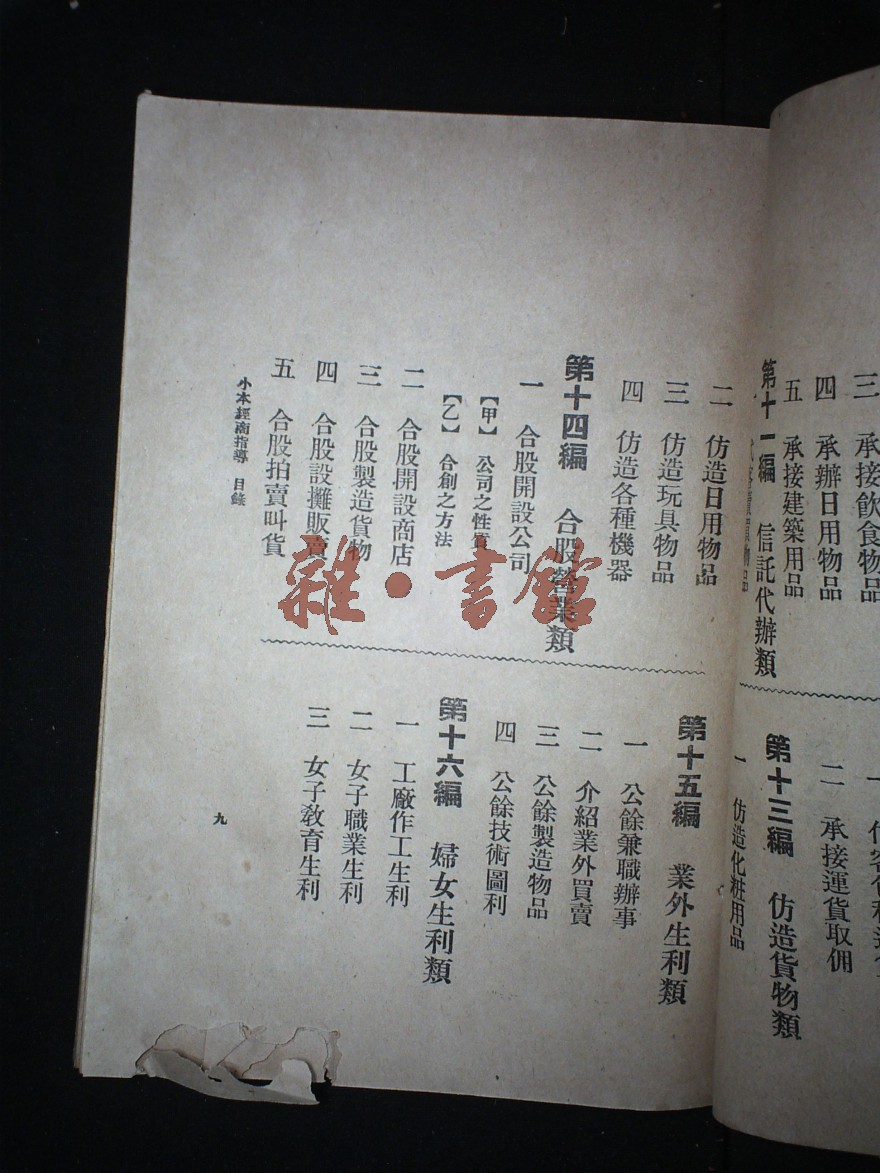 三 承接飲食物品
四 承辦日用物品
五 承接建築用品
第十一編 信託代辦類
二 承接運貨取佣
第十三編 仿造貨物類
一 仿造化粧用品
二 仿造日用物品
三 仿造玩具物品
四 仿造各種機器
第十四編 合股營業類
一 合股開設公司
【甲】 公司之性質
【乙】 合創之方法
二 合股開設商店
三 合股製造貨物
四 合股設攤販賣
五 合股拍賣叫貨
第十五編 業外生利類
一 公餘兼職辦事
二 介紹業外買賣
三 公餘製造物品
四 公餘技術圖利
第十六編 婦女生利類
一 工廠作工生利
二 女子職業生利
三 女子教育生利
小本經商指導 目錄
九
雜·書館